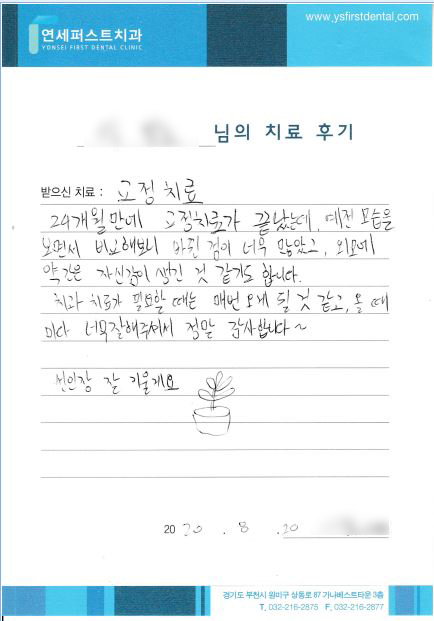 연세퍼스트치과
YONSEI FIRST DENTAL CLINIC
www.ysfirstdental.com
님의 치료 후기
받으신 치료 : 교정치료
24개월만에 교정치료가 끝났는데, 예전 모습을
보면서 비교해보니 바뀐 점이 너무 많았고, 외모에
약간은 자신감이 생긴 것 같기도 합니다.
치과 치료가 필요할 때는 매번 오게 될 것 같고, 올 때
마다 너무 잘해주셔서 정말 감사합니다~
선인장 잘 키울게요
20 20 . 8 . 20
경기도 부천시 원미구 상동로 87 가나베스트타운 3층
T. 032-216-2875 F. 032-216-2877